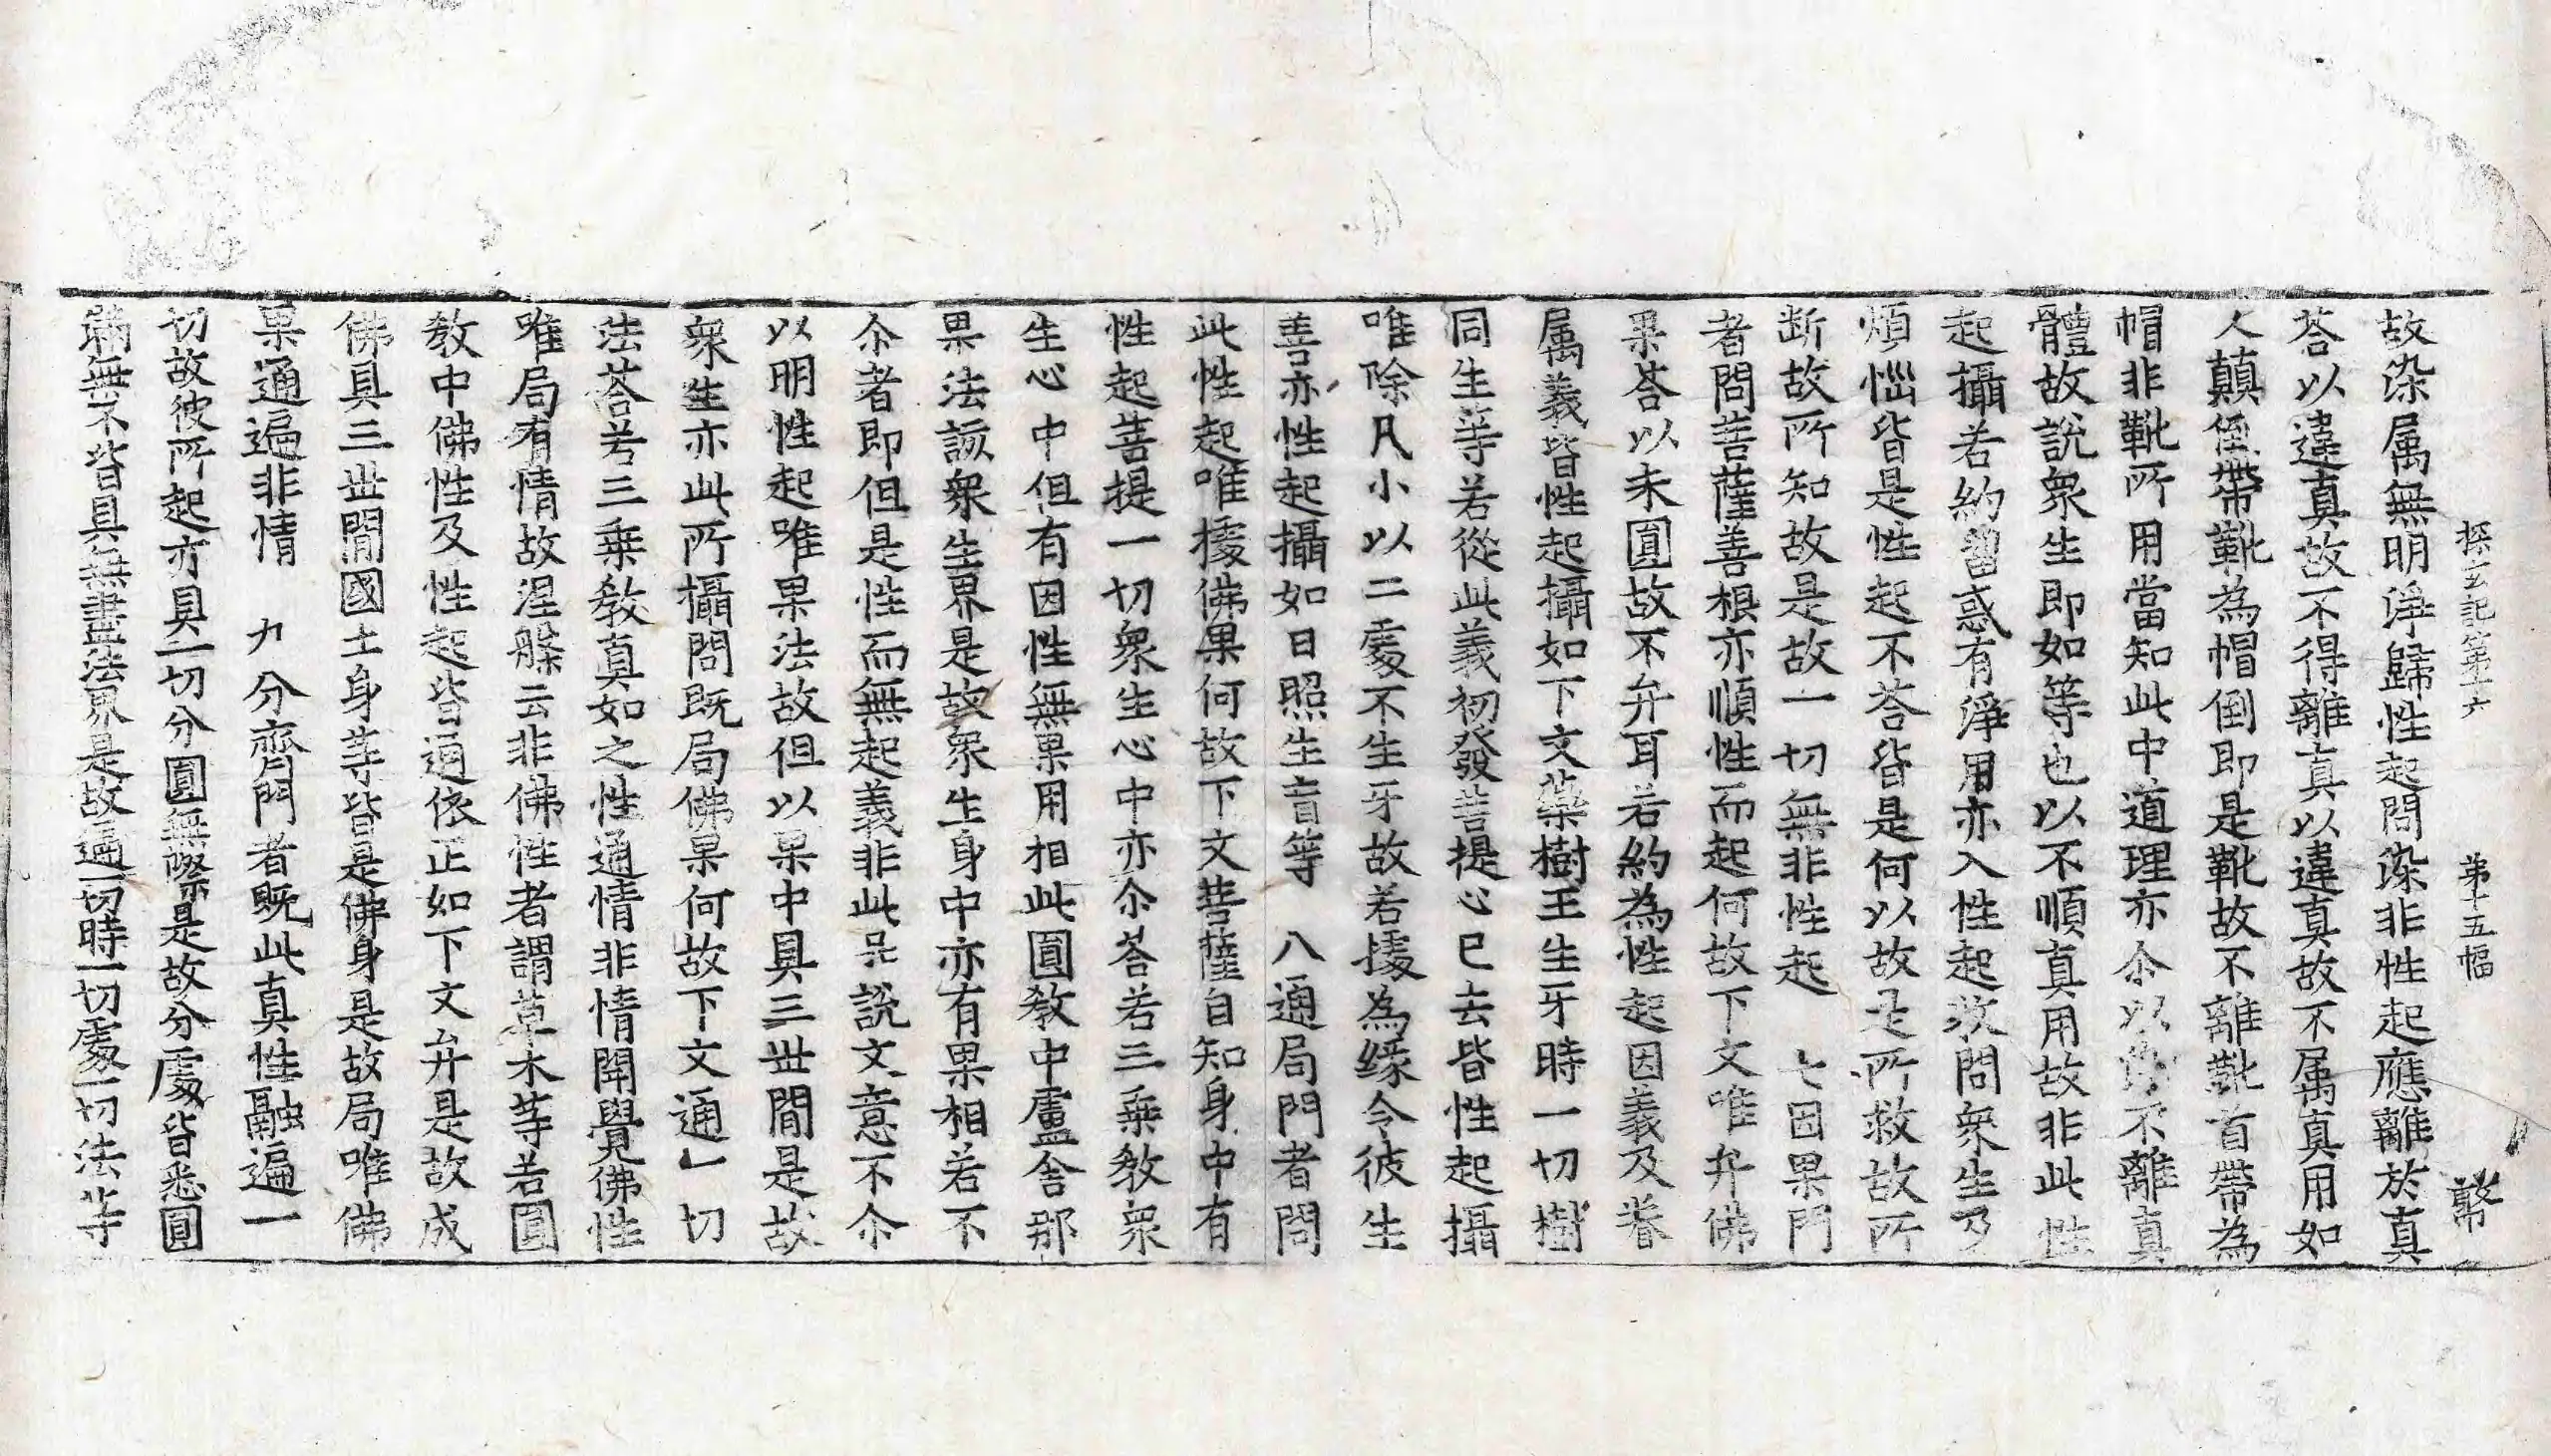 探玄記第十六 第十五幅 弊
故染属無明淨歸性起問染非性起應離於真
荅以違真故不得離真以違真故不属真用如
人顛倒帶靴為帽倒即是靴故不離靴首帶為
帽非靴所用當知此中道理亦尒以染不離真
體故說衆生即如等也以不順真用故非此性
起攝若約留惑有淨用亦入性起攻問衆生乃
煩惱皆是性起不荅皆是何以故是所救故所
断故所知故是故一切無非性起 七因果門
者問菩薩善根亦順性而起何故下文唯弁佛
果荅以未圓故不弁耳若約為性起因義及眷
属義皆性起攝如下文藥樹王生牙時一切樹
同生等若從此義初發菩提心已去皆性起攝
唯除凡小以二處不生牙故若據為緣令彼生
善亦性起攝如日照生盲等 八通局門者問
此性起唯據佛果何故下文菩薩自知身中有
性起菩提一切衆生心中亦尒荅若三乗教衆
生心中但有因性無果用相此圓教中盧舍那
果法該衆生界是故衆生身中亦有果相若不
尒者即但是性而無起義非此品說文意不尒
以明性起唯果法故但以果中具三世間是故
衆生亦此所攝問既局佛果何故下文通一切
法荅若三乗教真如之性通情非情開覺佛性
唯局有情故涅槃云非佛性者謂草木等若圓
教中佛性及性起皆通依正如下文弁是故成
佛具三世間國土身等皆是佛身是故局唯佛
果通遍非情 九分齊門者既此真性融遍一
切故彼所起亦具一切分圓無際是故分處皆悉圓
滿無不皆具無盡法界是故遍一切時一切處一切法等